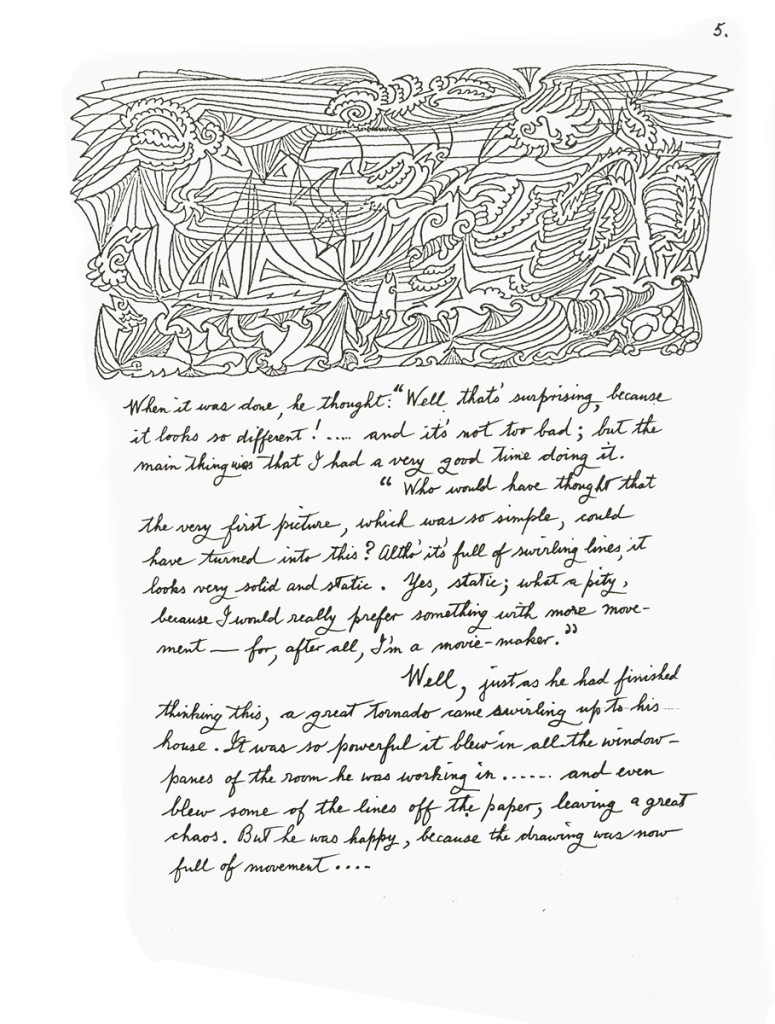 5.
When it was done, he thought: "Well that's surprising, because
it looks so different! ..... and it's not too bad; but the
main thing was that I had a very good time doing it.
"Who would have thought that
the very first picture, which was so simple, could
have turned into this? Altho' it's full of swirling lines, it
looks very solid and static. Yes, static; what a pity,
because I would really prefer something with more move-
ment — for, after all, I'm a movie-maker."
Well, just as he had finished
thinking this, a great tornado came swirling up to his
house. It was so powerful it blew in all the window-
panes of the room he was working in ...... and even
blew some of the lines off the paper, leaving a great
chaos. But he was happy, because the drawing was now
full of movement ....